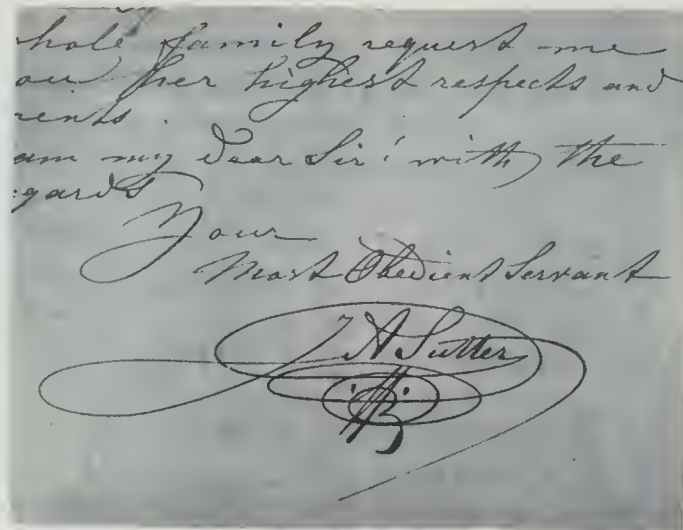 hole family request me
ou her highest respects and
ents.
am my Dear Sir! with the
gards
Your
Most Obedient Servant
J A Sutter